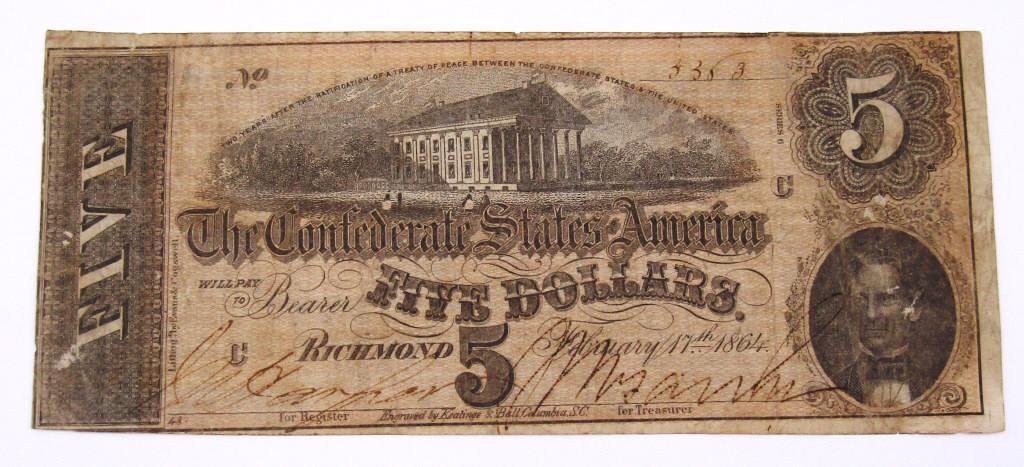 TWO YEARS AFTER THE RATIFICATION OF A TREATY OF PEACE BETWEEN THE CONFEDERATE STATES & THE UNITED STATES
No
5
FIVE
SERIES 6
C
The Confederate States of America
WILL PAY
TO Bearer
FIVE DOLLARS.
C
RICHMOND 5 February 17th 1864.
for Register
Engraved by Keatinge & Ball, Columbia, S.C.
for Treasurer